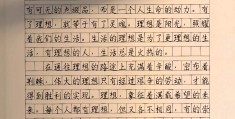 有可无的点缀品，而是一个人生命的动力。有
了理想，就等于有了灵魂。理想是阳光，照耀
着我们的生活。生活的理想是为了更理想的生
活。有理想的人，生活总是火热的。
在通往理想的路途上充满着辛酸，密布着
荆棘，伟大的理想只有经过斗争的劳动，才能
得到胜利的实现。理想，象征着满载希望的未
来。每个人都有理想，但又各不相同，有的崇